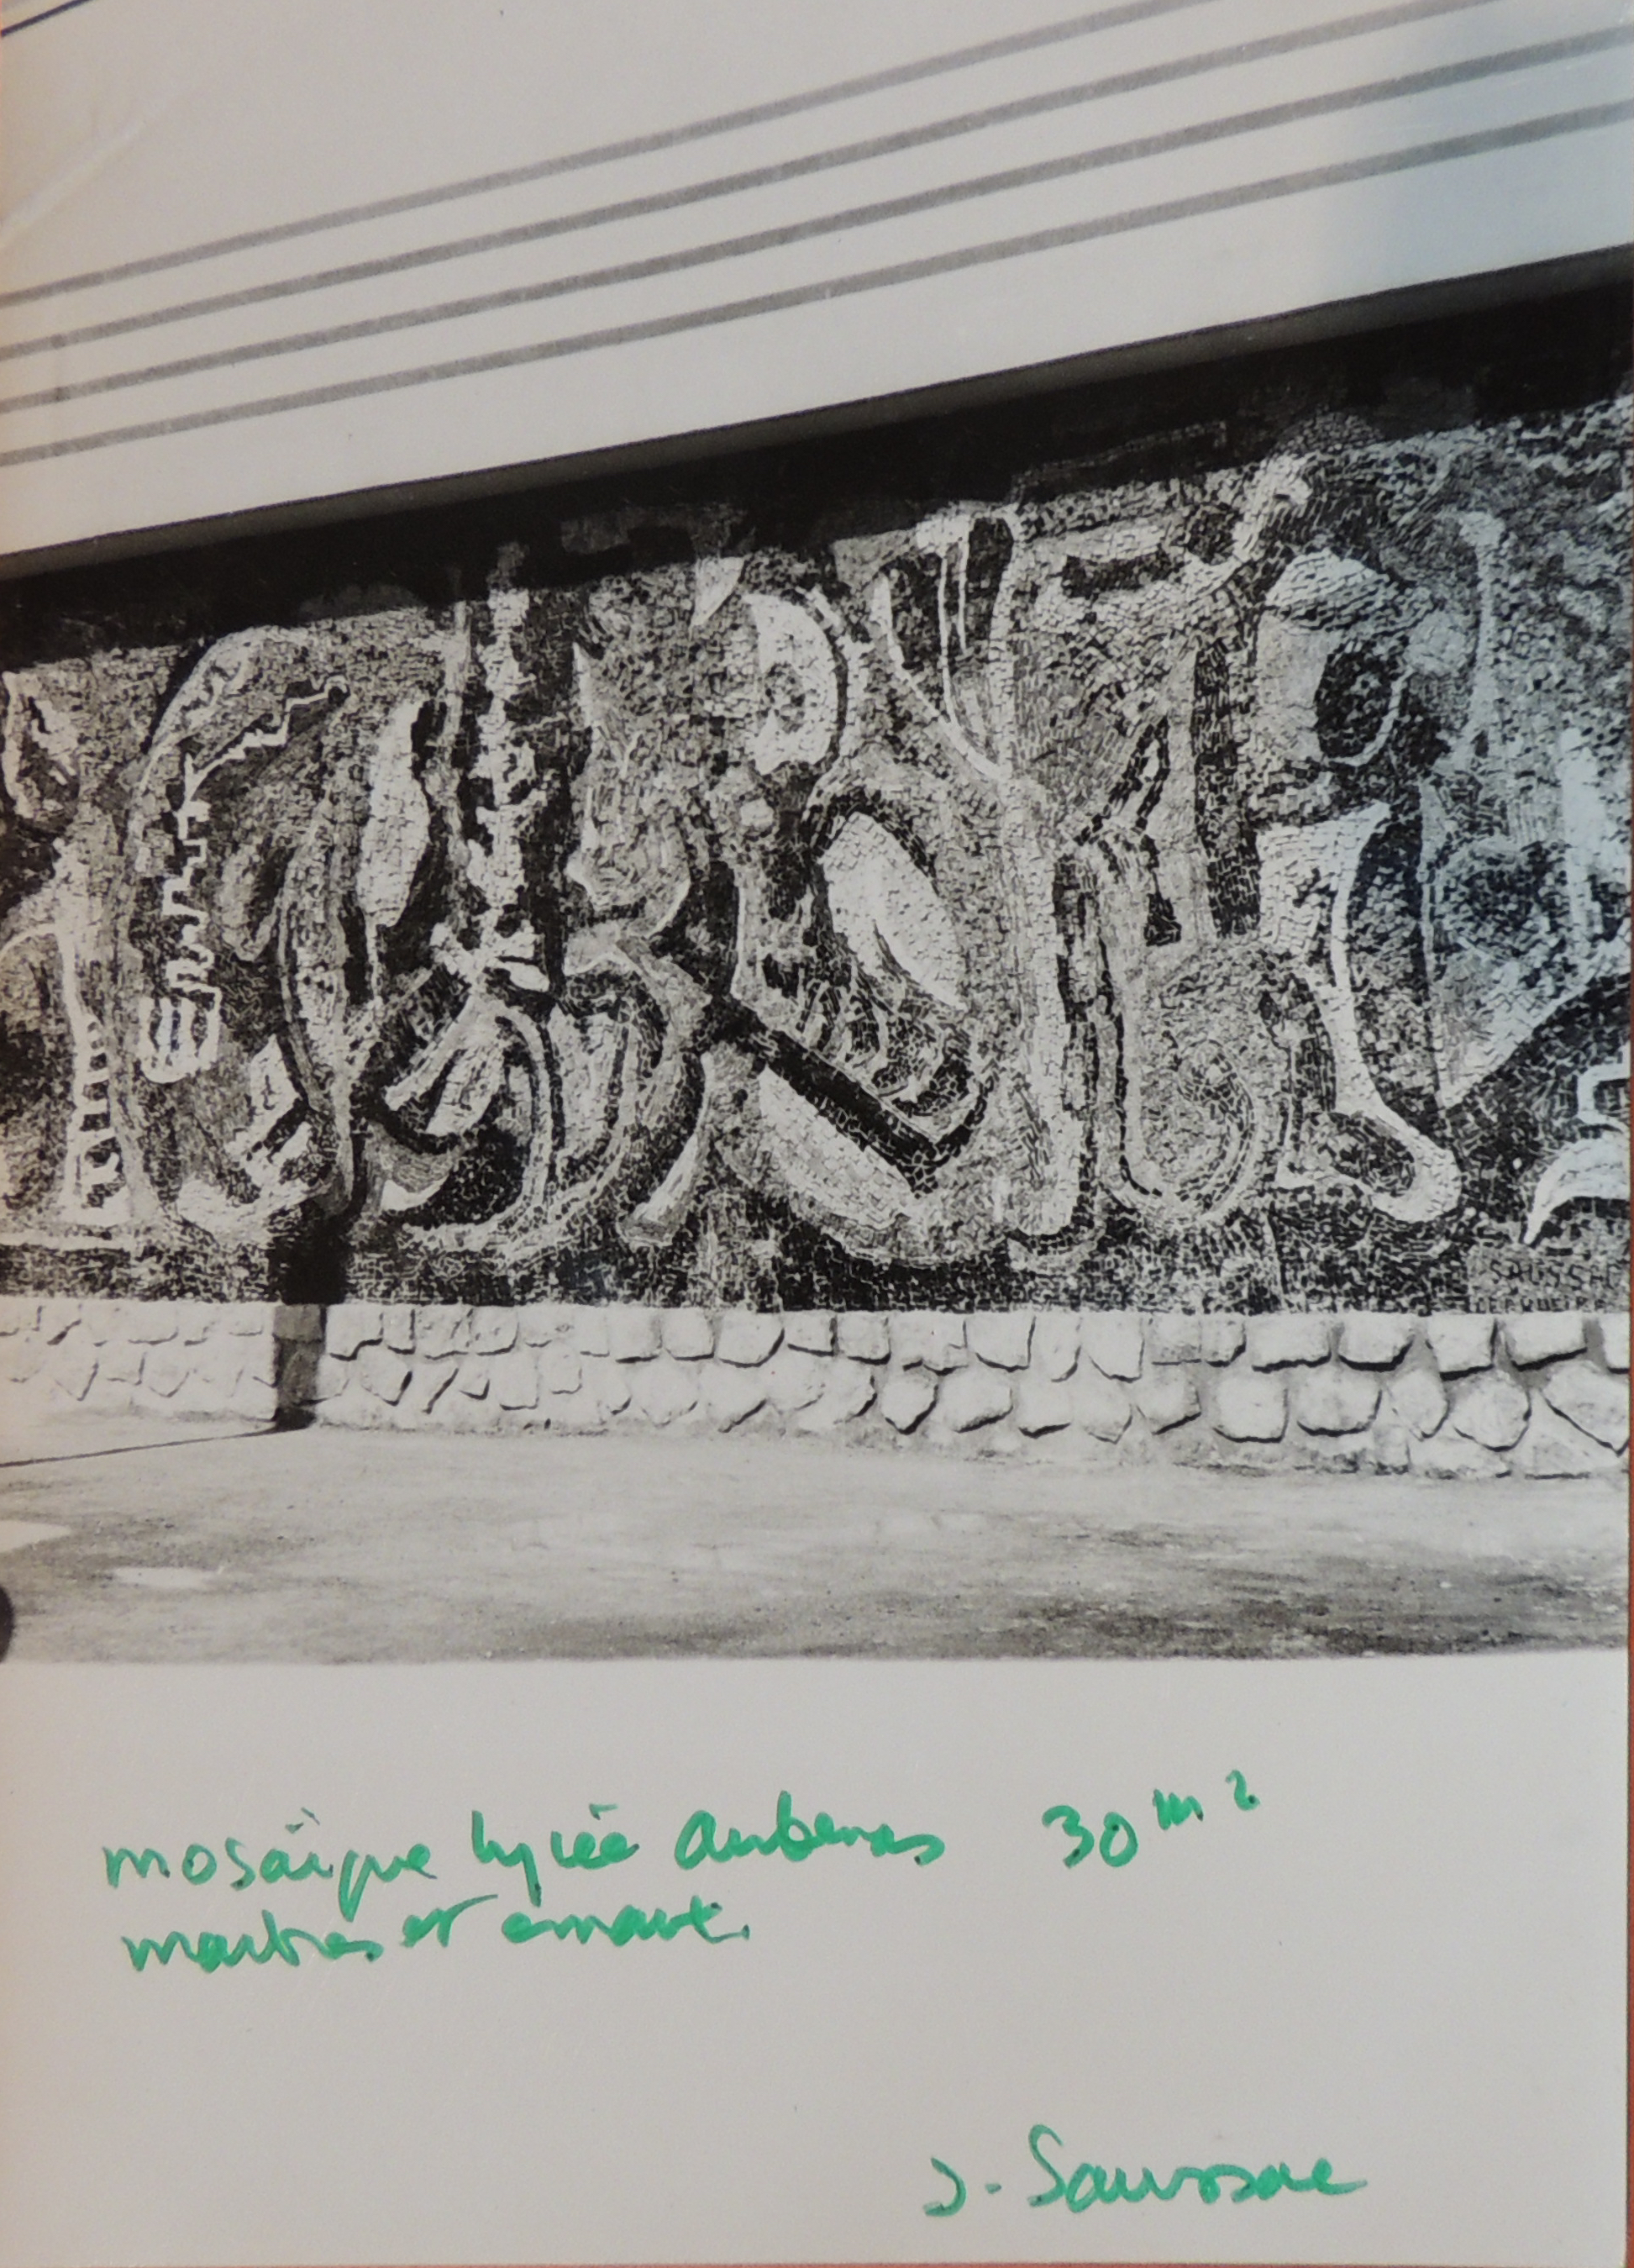 SAUSSAC
mosaïque lycée Aubenas 30 m²
marbres et emaux.
J. Saussac